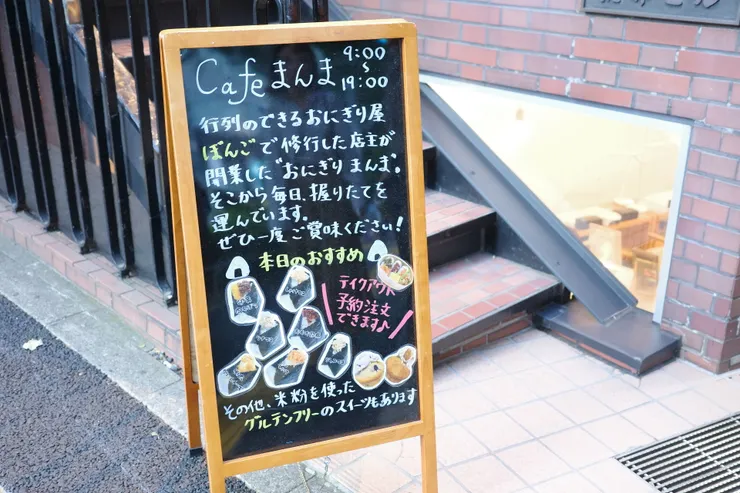 Cafe まんま 9:00
〜
19:00
行列のできるおにぎり屋
ぼんごで修行した店主が
開業した"おにぎりまんま"。
そこから毎日、握りたてを
運んでいます。
ぜひ一度ご賞味ください!
本日のおすすめ
テイクアウト
予約注文
できます♪
その他、米粉を使った
グルテンフリーのスイーツもあります